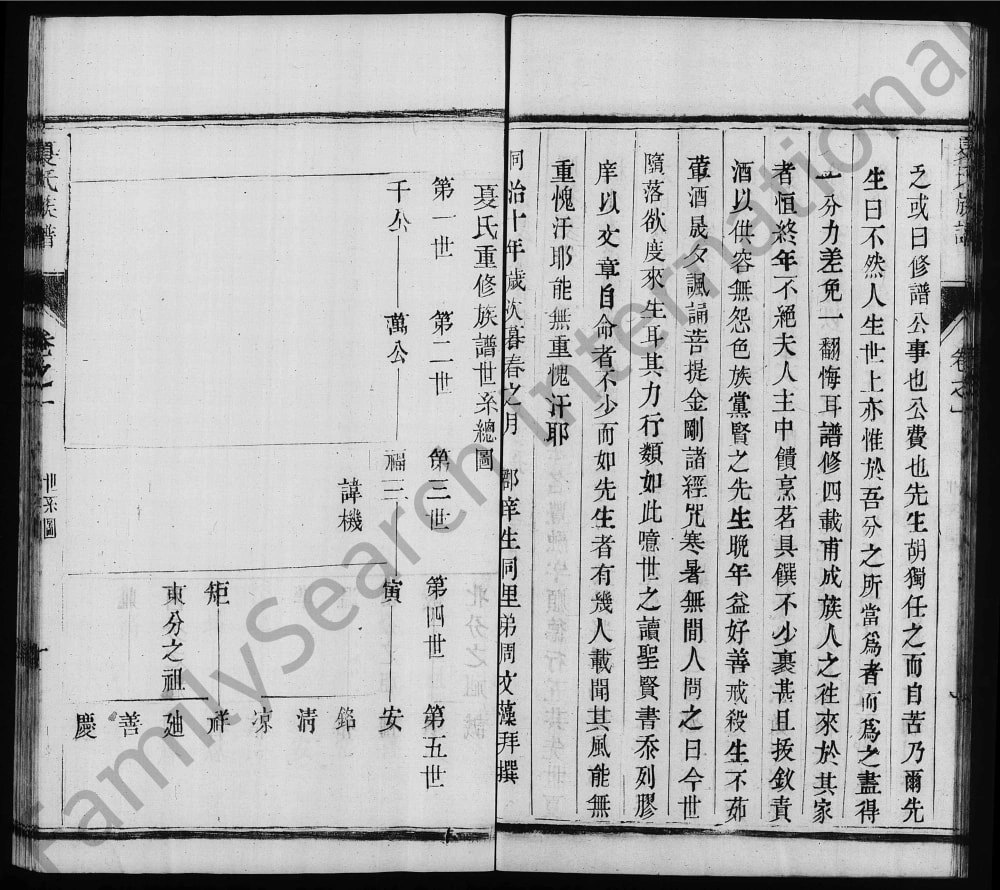 之或曰修譜公事也公費也先生胡獨任之而自苦乃爾先
生曰不然人生世上亦惟於吾分之所當爲者而爲之盡得
五分力差免一翻悔耳譜修四載甫成族人之往來於其家
者恒終年不絕夫人主中饋烹茗具饌不少褱甚且拔釵責
酒以供容無怨色族黨賢之先生晚年益好善戒殺生不茹
葷酒晟夕諷誦菩提金剛諸經咒寒暑無間人問之曰今世
墮落欲度來生耳其力行類如此噫世之讀聖賢書忝列膠
庠以文章自命者不少而如先生者有幾人載聞其風能無
重愧汗耶能無重愧汗耶
同治十年歲次暮春之月 郡庠生同里弟周文藻拜撰
夏氏重修族譜世系總圖
第一世 第二世 第三世 第四世 第五世
千公 萬公 福三 寅 安
諱機 銘
清
涼
矩 祥
東分之祖 廸
善
慶
夏氏族譜 卷之一 世系圖
FamilySearch International